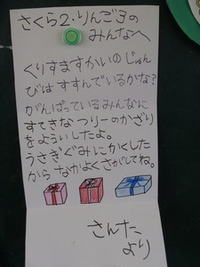 さくら2・りんご3の
みんなへ
くりすますかいのじゅん
びはすすんでいるかな?
がんばっているみんなに
すてきなつりーのかざり
をよういしたよ。
うさぎぐみにかくした
からなかよくさがしてね。
さんた
より